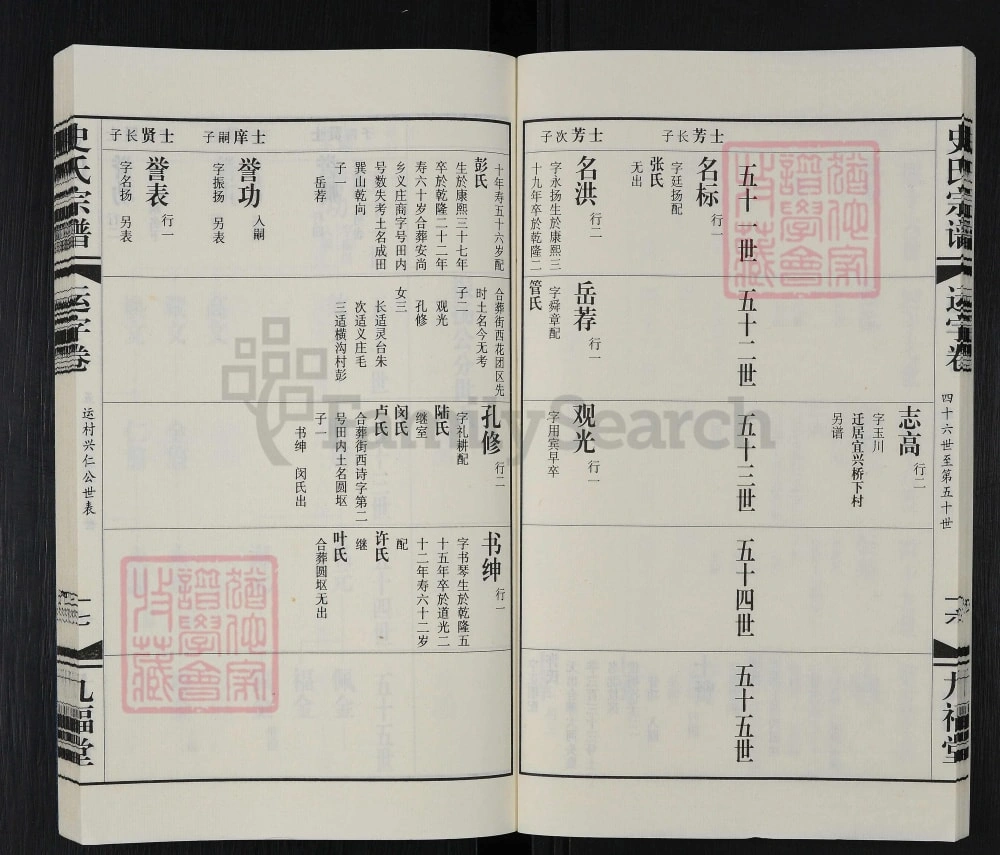 史氏宗谱
运字卷
四十六世至第五十世
一六
九福堂
志高 行二
字玉川
迁居宜兴桥下村
另谱
五十一世
五十二世
五十三世
五十四世
五十五世
士芳长子
名标 行一
字廷扬配
张氏
无出
士芳次子
名洪 行二
字永扬生於康熙三
十九年卒於乾隆二
岳荐 行一
字舜章配
管氏
观光 行一
字用宾早卒
十年寿五十六岁配
彭氏
生於康熙三十七年
卒於乾隆二十二年
寿六十岁合葬安尚
乡义庄商字号田内
号数失考土名成田
巽山乾向
子一
岳荐
士庠嗣子
誉功 入嗣
字振扬 另表
士贤长子
誉表 行一
字名扬 另表
合葬街西花团区先
时土名今无考
子二
观光
孔修
女三
长适灵台朱
次适义庄毛
三适横沟村彭
孔修 行二
字礼耕配
陆氏
继室
闵氏
卢氏
合葬街西诗字第二
号田内土名圆坵
子一
书绅 闵氏出
书绅 行一
字书琴生於乾隆五
十五年卒於道光二
十二年寿六十二岁
配
许氏
继
叶氏
合葬圆坵无出
史氏宗谱
运字卷
运村兴仁公世表
一七
九福堂
猶他家
譜學會
收藏
猶他家
譜學會
收藏
FamilySearch